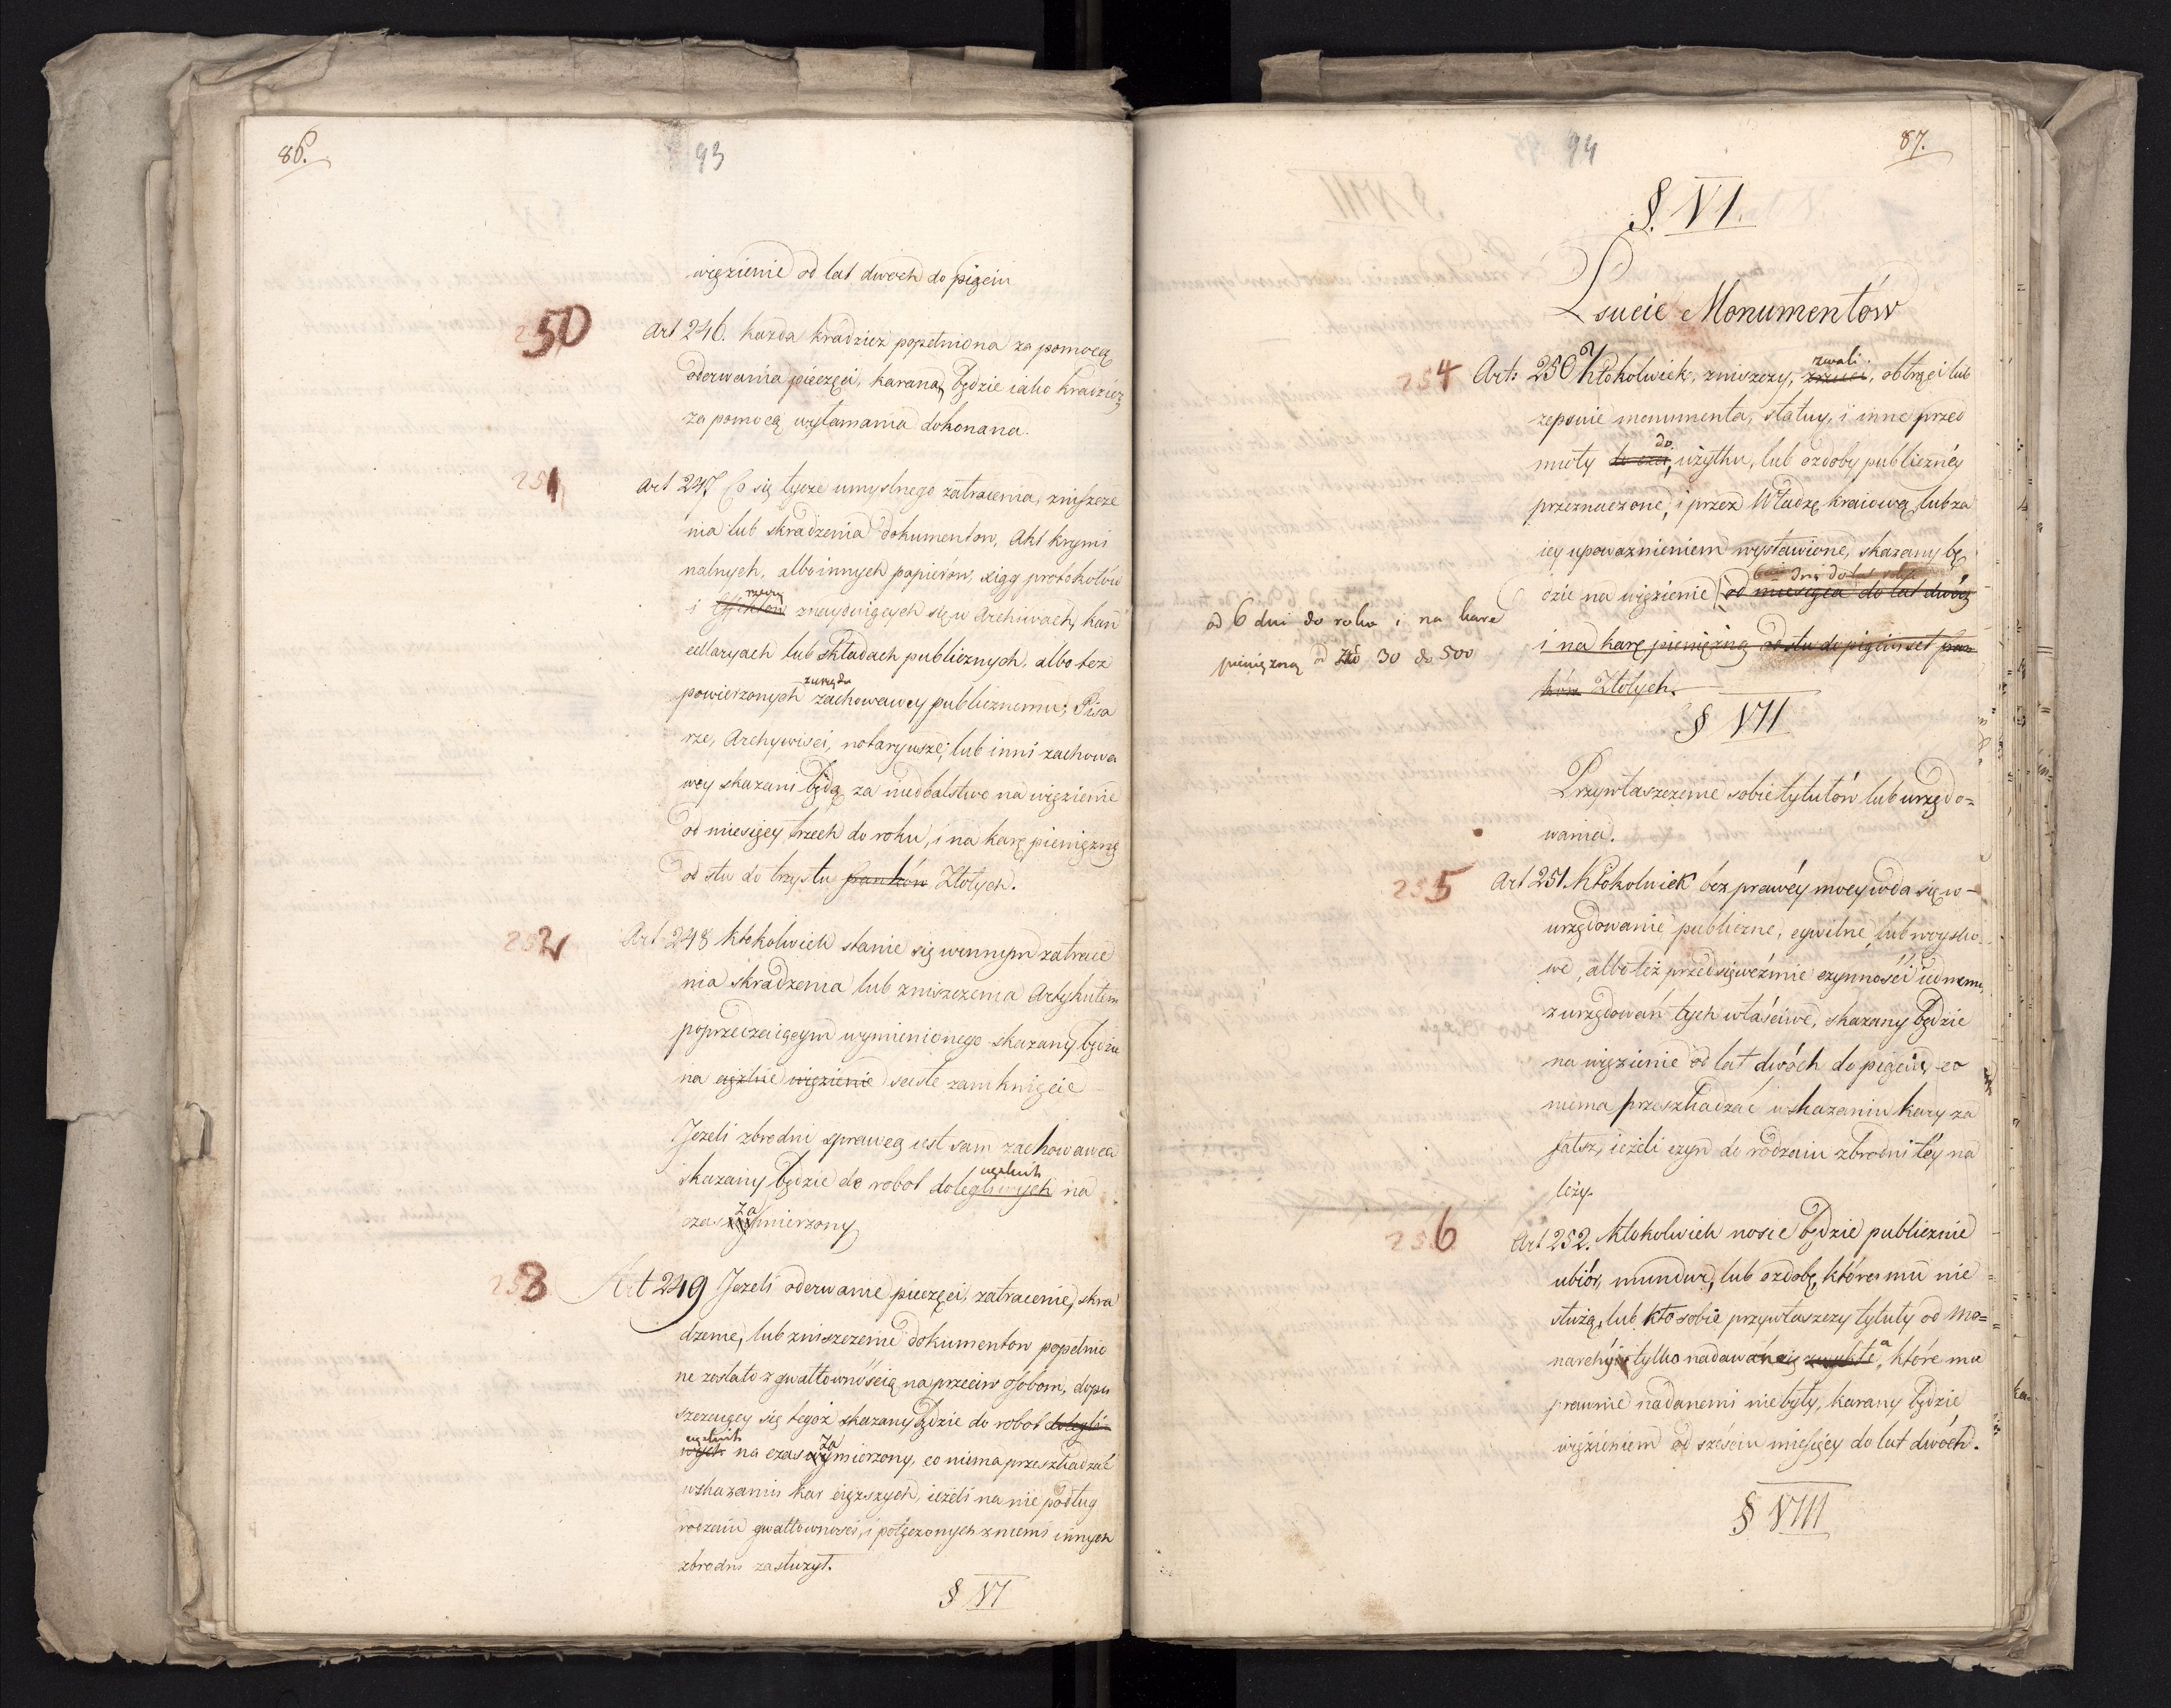 86.
93
więzienie od lat dwoch do pięciu
250
Art 246. każda kradzież popełniona za pomocą
oderwania pieczęci, karana, będzie iako kradzież
za pomocą wyłamania dokonana.
251
Art 247 Co się tycze umyslnego zatracenia, zniszcze
nia lub skradzenia dokumentow, Akt krymi
nalnych, albo innych papierów, xiąg protokołów
rzeczy
i effektow znayduiących się w Archiwach, kan
cellaryach lub składach publicznych, albo też
z urzędu
powierzonych zachowawcy publicznemu, Pisa
rze, Archywisci, notaryusze, lub inni zachowa
wcy skazani będą za niedbalstwo na więzienie
od miesięcy trzech do roku, i na karę pieniężną
od stu do trzystu franków Złotych.
252
Art 248 Ktokolwiek stanie się winnym zatrace
nia skradzenia lub zniszczenia Artykułem
poprzedzaiącym wymienionego skazany będzie
na ciężkie więzienie scisłe zamknięcie
Jeżeli zbrodni sprawcą iest sam zachowawca
ciężkich
skazany będzie do robot dolegliwych na
za
czas wymierzony
253
Art 249 Jeżeli oderwanie pieczęci, zatracenie, skra
dzenie, lub zniszczenie dokumentow popełnio
ne zostało z gwałtownością na przeciw osobom, dopu
szczaiący się tegoż skazany będzie do robot dolegli-
ciężkich za
wych na czas wymierzony, co niema przeszkadzać
wskazaniu kar cięższych, ieżeli na nie podług
rodzaiu gwałtowności, i połączonych z niemi innych
zbrodni zasłużył.
§ VI
94
87.
§. VI.
Psucie Monumentów
254
zwali
Art: 250 Ktokolwiek, zniszczy, zrzuci, obtrąci lub
zepsuie monumenta, statuy, i inne przed
do
mioty ku czci, użytku, lub ozdoby publicznéy
przeznaczone, i przez Władzę kraiową, lub za
iey upoważnieniem wystawione, skazany bę
dzie na więzienie od miesiąca do lat dwóch
od 6 dni do roku i na karę
pieniężną od Zło 30 do 500
i na karę pieniężną od stu do pięciuset fran
ków Złotych.
§ VII
Przywłaszczenie sobie tytułów lub urzędo=
wania.
255
Art 251. Ktokolwiek bez prawéy mocy wda się w-
urzędowanie publiczne, cywilne, lub woysko
we, albo też przedsięweźmie czynności iednemu,
z urzędowań tych właściwe, skazany będzie
na więzienie od lat dwóch do pięciu, co
niema przeszkadzać wskazaniu kary za
fałsz, ieżeli czyn do rodzaiu zbrodni téy na
leży.
256
Art 252. Ktokolwiek nosić będzie publicznie
ubiór, mundur, lub ozdobę, które mu nie
służą, lub kto sobie przywłaszczy tytuły od Mo=
narchy tylko nadawane zwykle, które mu
prawnie nadanemi nie były, karany będzie
więzieniem od sześciu miesięcy do lat dwóch.
§ VIII